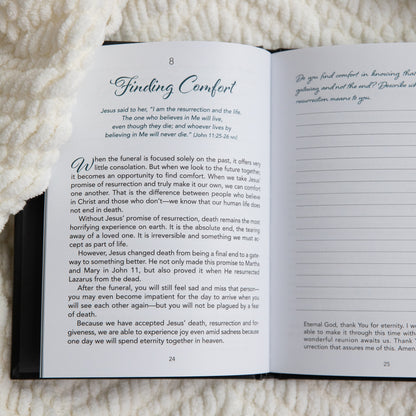 8
Finding Comfort
Jesus said to her, "I am the resurrection and the life.
The one who believes in Me will live,
even though they die; and whoever lives by
believing in Me will never die." (John 11:25-26 NIV)
When the funeral is focused solely on the past, it offers very
little consolation. But when we look to the future together,
it becomes an opportunity to find comfort. When we take Jesus'
promise of resurrection and truly make it our own, we can comfort
one another. That is the difference between people who believe
in Christ and those who don't—we know that our human life does
not end in death.
Without Jesus' promise of resurrection, death remains the most
horrifying experience on earth. It is the absolute end, the tearing
away of a loved one. It is irreversible and something we must ac-
cept as part of life.
However, Jesus changed death from being a final end to a gate-
way to something better. He not only made this promise to Martha
and Mary in John 11, but also proved it when He resurrected
Lazarus from the dead.
After the funeral, you will still feel sad and miss that person—
you may even become impatient for the day to arrive when you
will see each other again—but you will not be plagued by a fear
of death.
Because we have accepted Jesus' death, resurrection and for-
giveness, we are able to experience joy even amid sadness because
one day we will spend eternity together in heaven.
24
Do you find comfort in knowing that
gateway and not the end? Describe
resurrection means to you.
Eternal God, thank You for eternity. I
able to make it through this time with
wonderful reunion awaits us. Thank
urrection that assures me of this. Amen
25